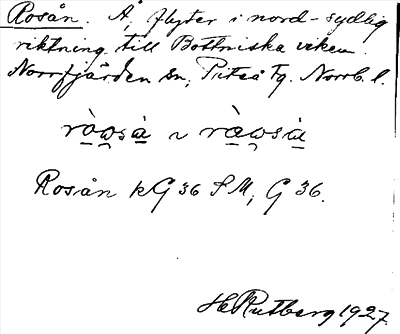 Rosån. Å, flyter i nord-sydlig
riktning till Bottniska viken.
Norrfjärden sn, Piteå tg. Norrb. l.
ròwsà ~ ràwsà
Rosån kG 36 SM, G 36.
H Rutberg 1927.